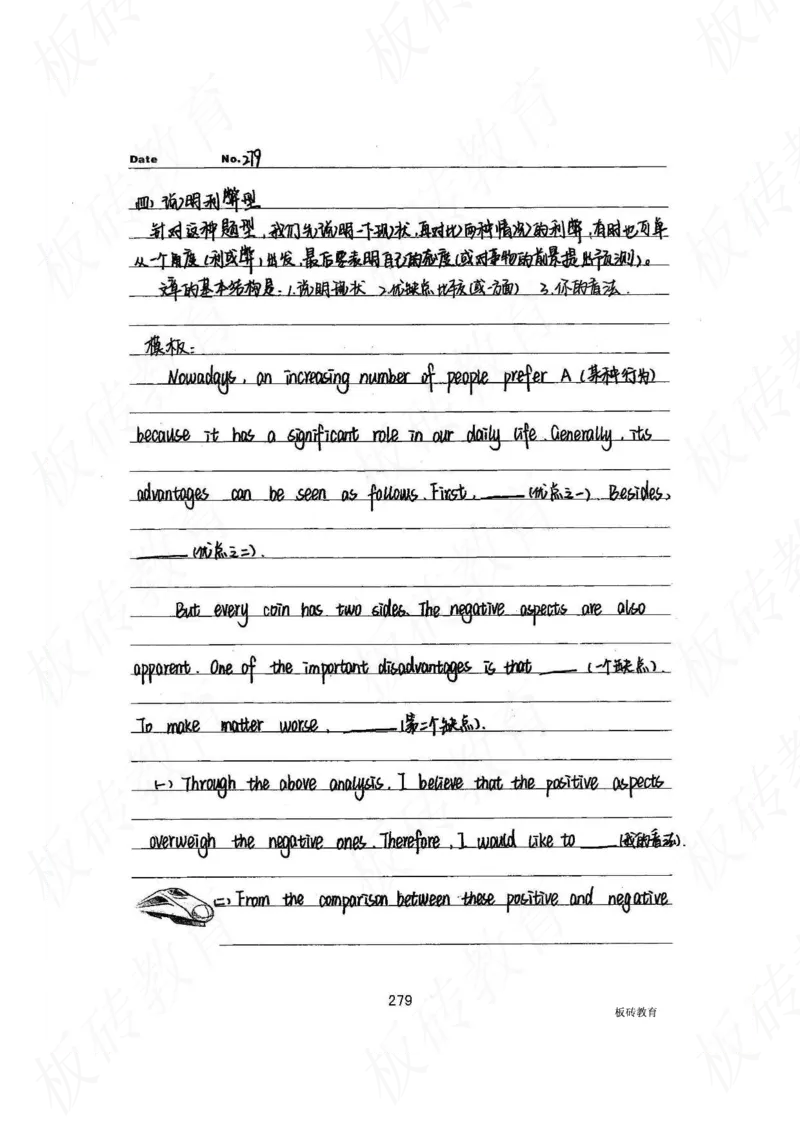 Date No.279
四、说明利弊型
针对这种题型，我们先说明一下现状，再对比两种情况的利弊，有时也可单
从一个角度（利或弊）出发，最后要表明自己的态度（或对事物的前景提出预测）。
文章的基本结构是：1.说明现状 2.优缺点比较（或一方面） 3.你的看法．
模板：
Nowadays, an increasing number of people prefer A（某种行为）
because it has a significant role in our daily life. Generally, its
advantages can be seen as follows. First, ____（优点之一）. Besides,
____（优点之二）.
But every coin has two sides. The negative aspects are also
apparent. One of the important disadvantages is that ____（一个缺点）.
To make matter worse, ____（第二个缺点）.
(一) Through the above analysis, I believe that the positive aspects
overweigh the negative ones. Therefore, I would like to ____（我的看法）.
(二) From the comparison between these positive and negative
279
板砖教育